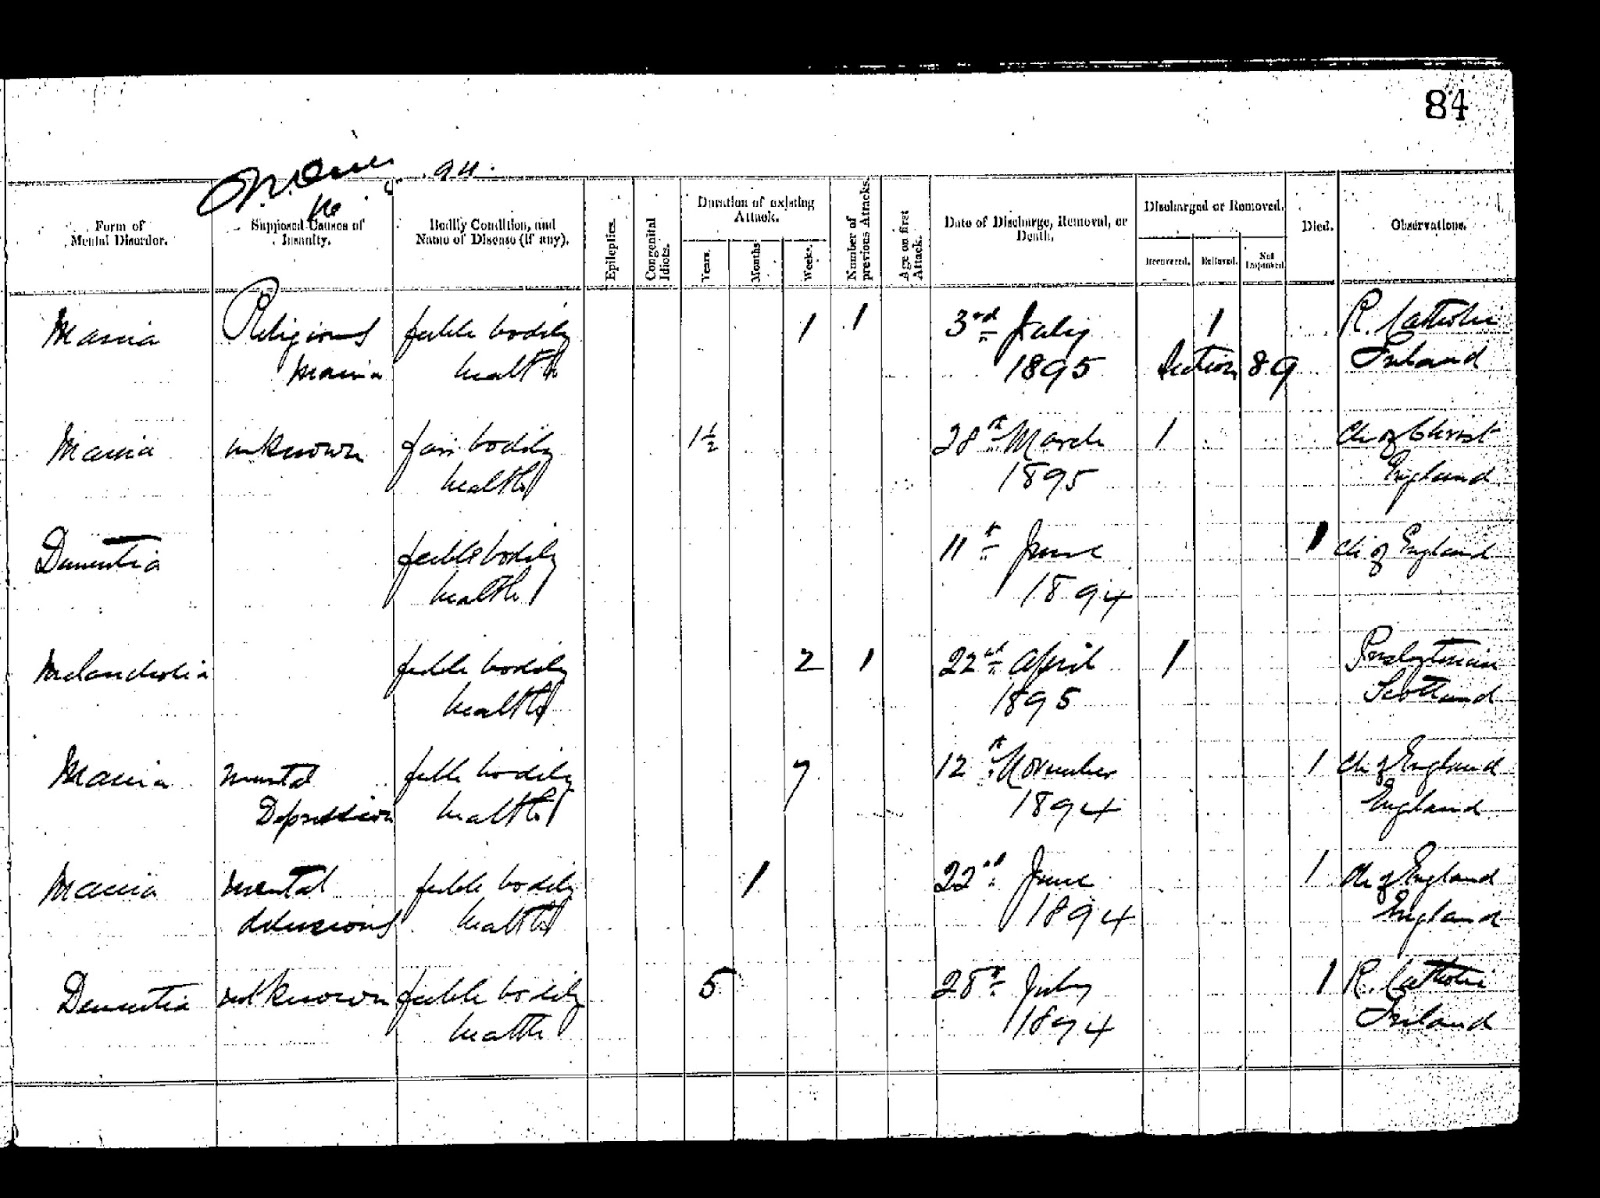 84
Form of Mental Disorder.
Supposed Causes of Insanity.
Bodily Condition, and Name of Disease (if any).
Epileptics.
Congenital Idiots.
Duration of existing Attack.
Years.
Months
Weeks.
Number of previous Attacks.
Age on first Attack.
Date of Discharge, Removal, or Death.
Discharged or Removed.
Recovered.
Relieved.
Not Improved.
Died.
Observations.
Mania Religious feeble bodily 1 1 3rd July 1 R. Catholic
Mania health 1895 Section 89 Ireland
Mania unknown fair bodily 1½ 28th March 1 Ch of Christ
health 1895 England
Dementia feeble bodily 11th June 1 Ch of England
health 1894
Melancholia feeble bodily 2 1 22nd April 1 Presbyterian
health 1895 Scotland
Mania mental feeble bodily 7 12th November 1 Ch of England
Depression health 1894 England
Mania mental feeble bodily 1 22nd June 1 Ch of England
delusions health 1894 England
Dementia unknown feeble bodily 5 28th July 1 R. Catholic
health 1894 Ireland